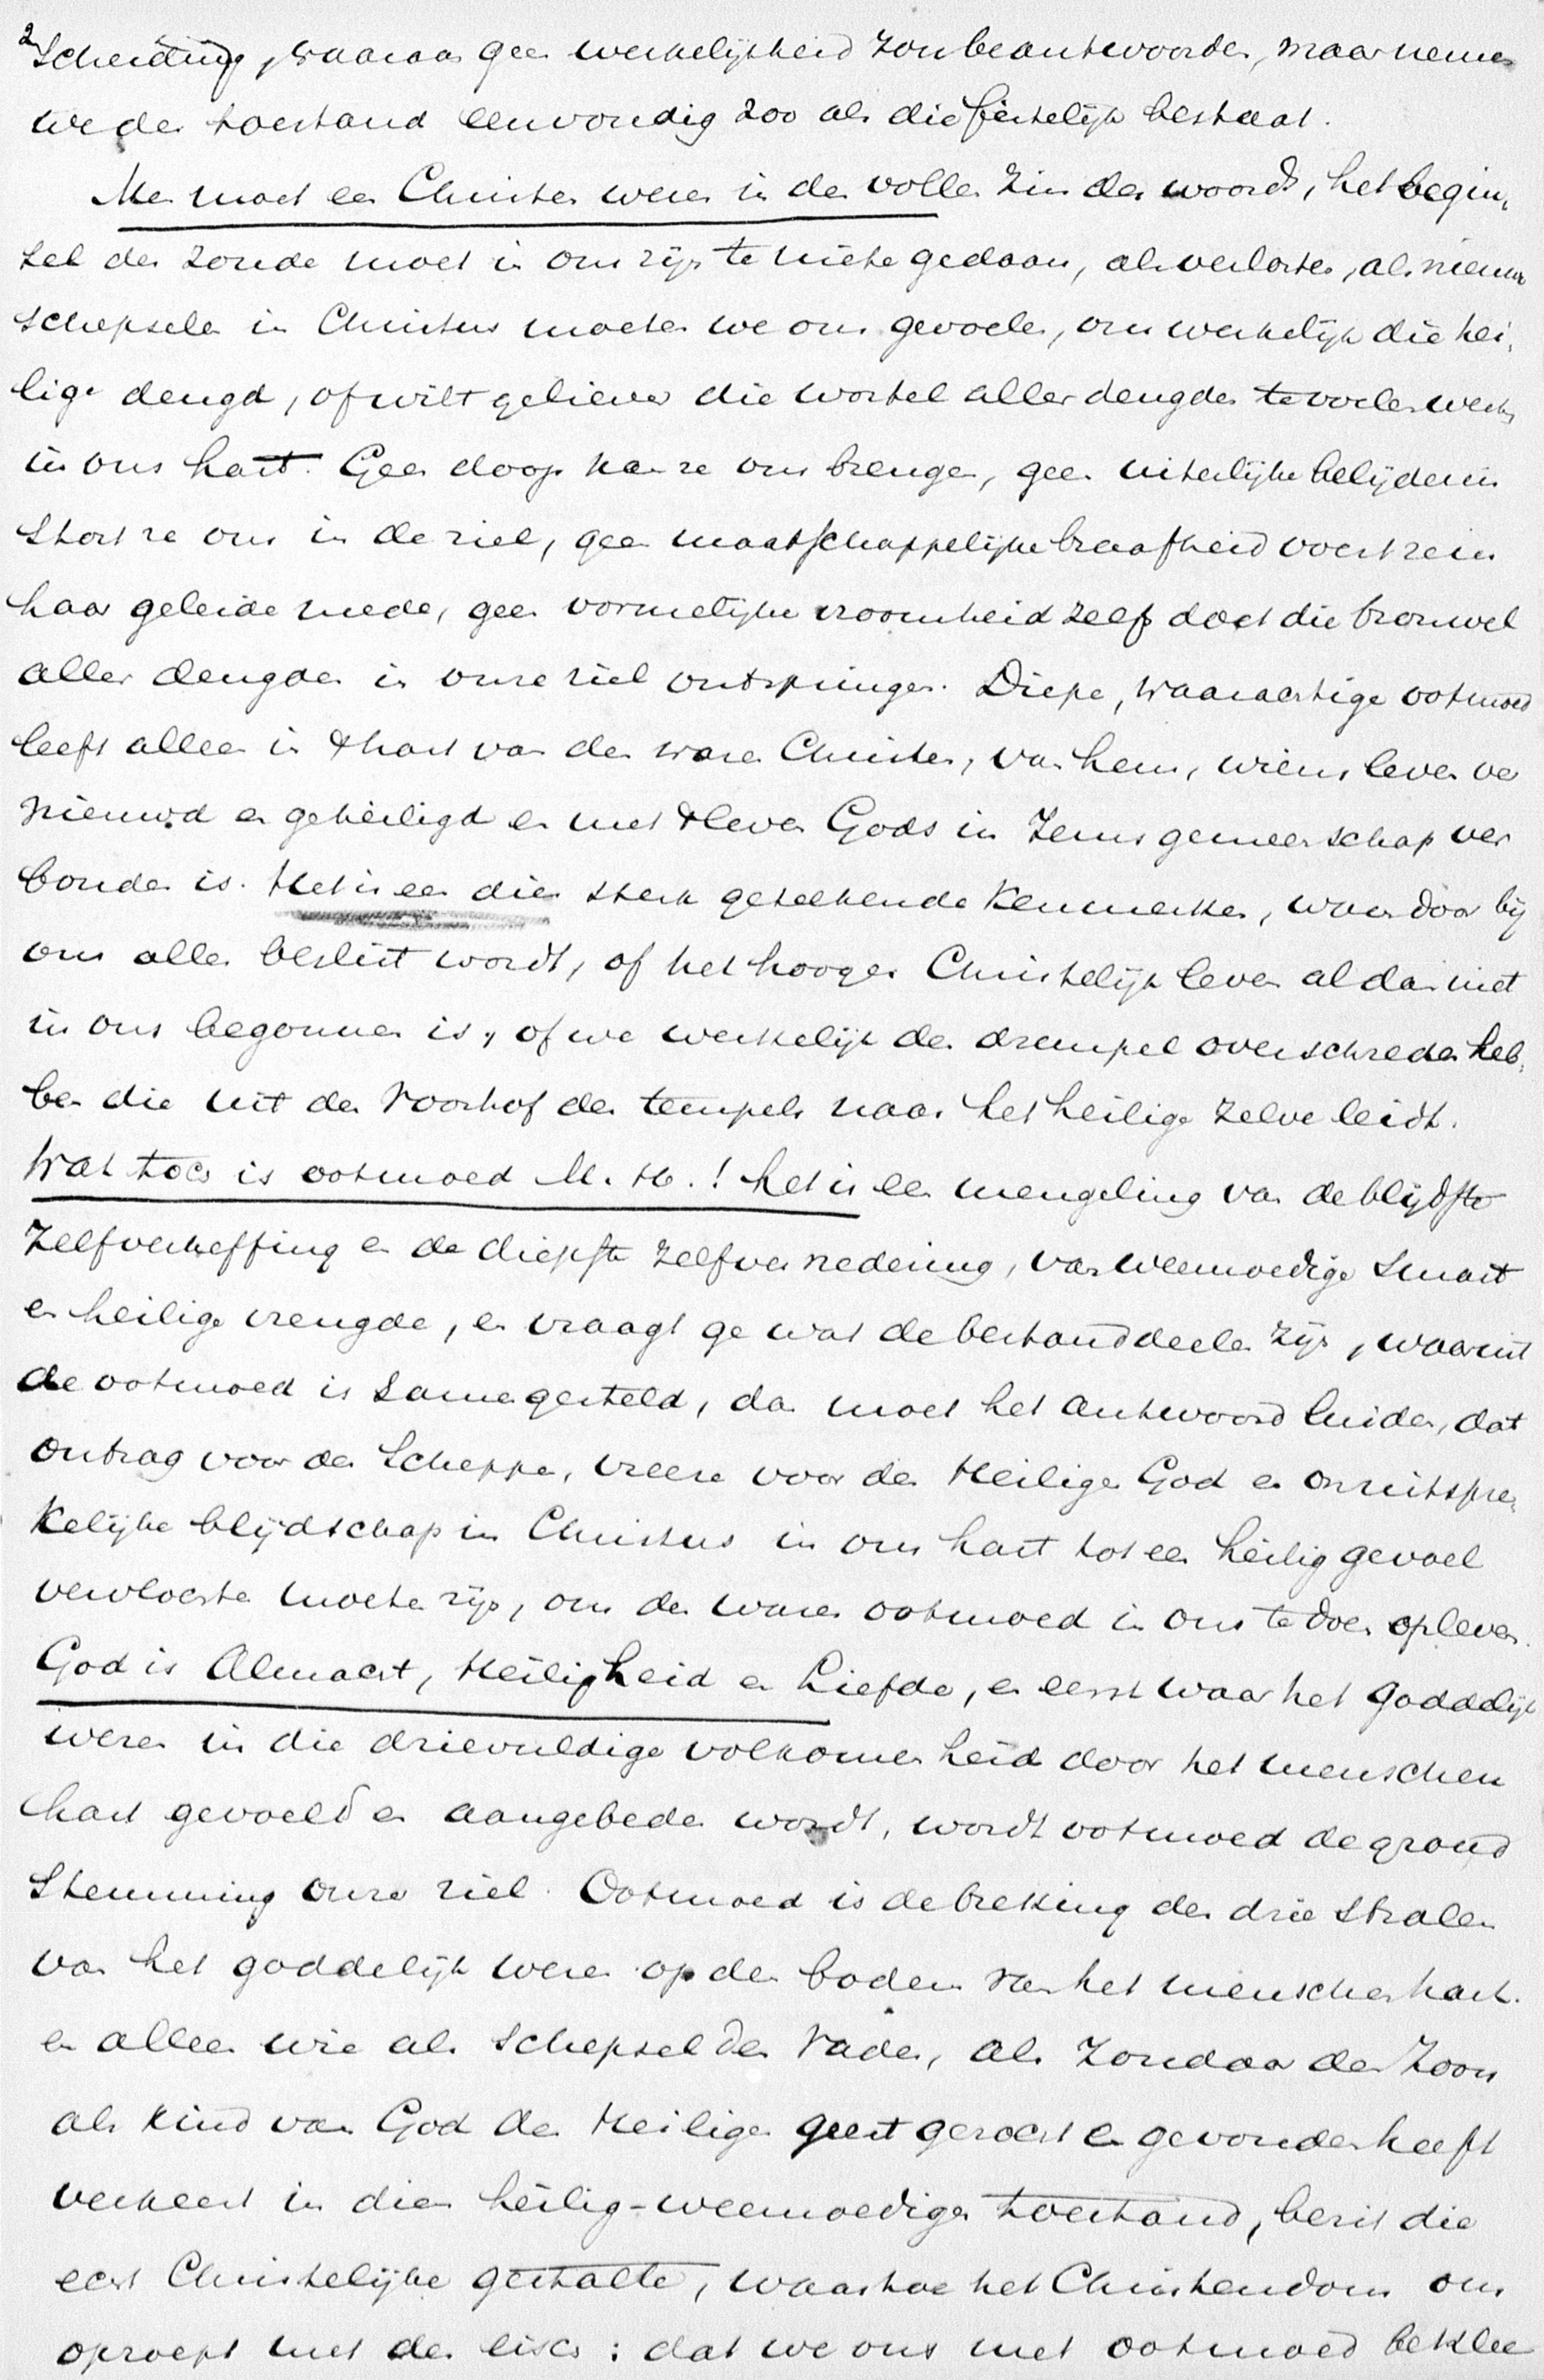 2 Scheiding, waaraan geen werkelijkheid zou beantwoorden, maar nemen
we den toestand eenvoudig zoo als die feitelijk bestaat.
Men moet een Christen wezen in den vollen zin des woords, het begin,
sel der zonde moet in ons zijn te niete gedaan, als verlosten, als nieuwe
schepselen in Christus moeten we ons gevoelen, om werkelijk die hei,
lige deugd, of wilt ge liever die wortel aller deugden te voelen werken
in ons hart. Geen doop kan ze ons brengen, geen uiterlijke belijdenis
stort ze ons in de ziel, geen maatschappelijke braafheid voert ze in
haar geleide mede, geen vormelijke vroomheid zelfs doet die bronwel
aller deugden in onze ziel ontspringen. Diepe, waarachtige ootmoed
leeft alleen in 't hart van den waren Christen, van hem, wiens leven ver
nieuwd en geheiligd en met 't leven Gods in Jezus gemeenschap ver
bonden is. Het is een dier sterk geteekende kenmerken, waardoor bij
ons allen beslist wordt, of het hooger Christelijk leven al dan niet
in ons begonnen is, of we werkelijk den drempel overschreden heb,
ben die uit den voorhof des tempels naar het heilige zelve leidt.
Wat toch is ootmoed M. H.! het is een mengeling van de blijdste
zelfverheffing en de diepste zelfvernedering, van weemoedige smart
en heilige vreugde, en vraagt ge wat de bestanddeelen zijn, waaruit
de ootmoed is samengesteld, dan moet het antwoord luiden, dat
ontzag voor den Schepper, vreeze voor den Heiligen God en onuitspre,
kelijke blijdschap in Christus in ons hart tot een heilig gevoel
vervloeste moeten zijn, om den waren ootmoed in ons te doen opleven.
God is Almacht, Heiligheid en Liefde, en eerst waar het goddelijk
wezen in die drievuldige volkomenheid door het menschen
hart gevoeld en aangebeden wordt, wordt ootmoed de grond
stemming onzer ziel. Ootmoed is de breking der drie stralen
van het goddelijk wezen op den bodem van het menschenhart.
en alleen wie als schepsel den Vader, als zondaar den Zoon
als kind van God den Heiligen geest gezocht en gevonden heeft
verkeert in dien heilig-weemoedigen toestand, bezit die
echt Christelijke gestalte, waartoe het Christendom ons
oproept met den eisch: dat we ons met ootmoed beklee